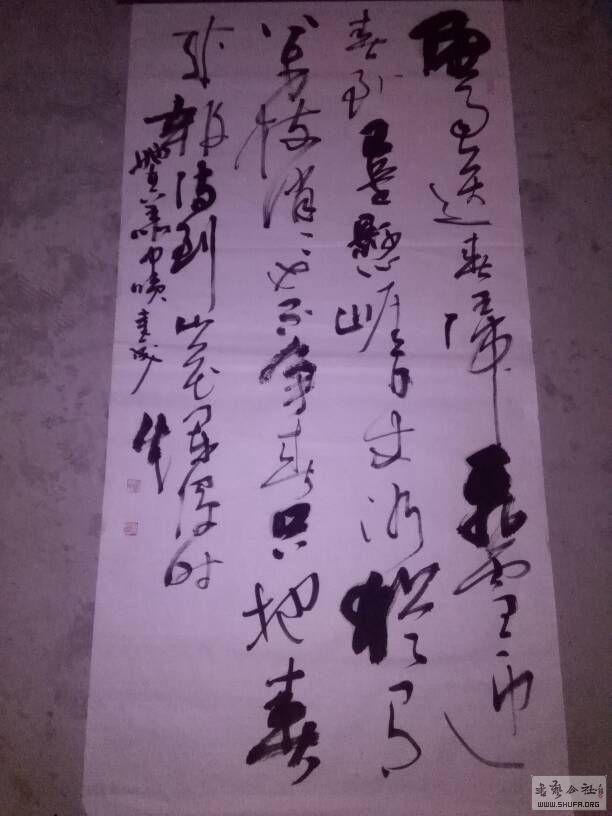 風雨送春歸飛雪迎
春到已是懸崖百丈冰猶有
花枝俏〻也不争春只把春
来報待到山花烂漫时
她在叢中笑
書艺公社
WWW.SHUFA.ORG